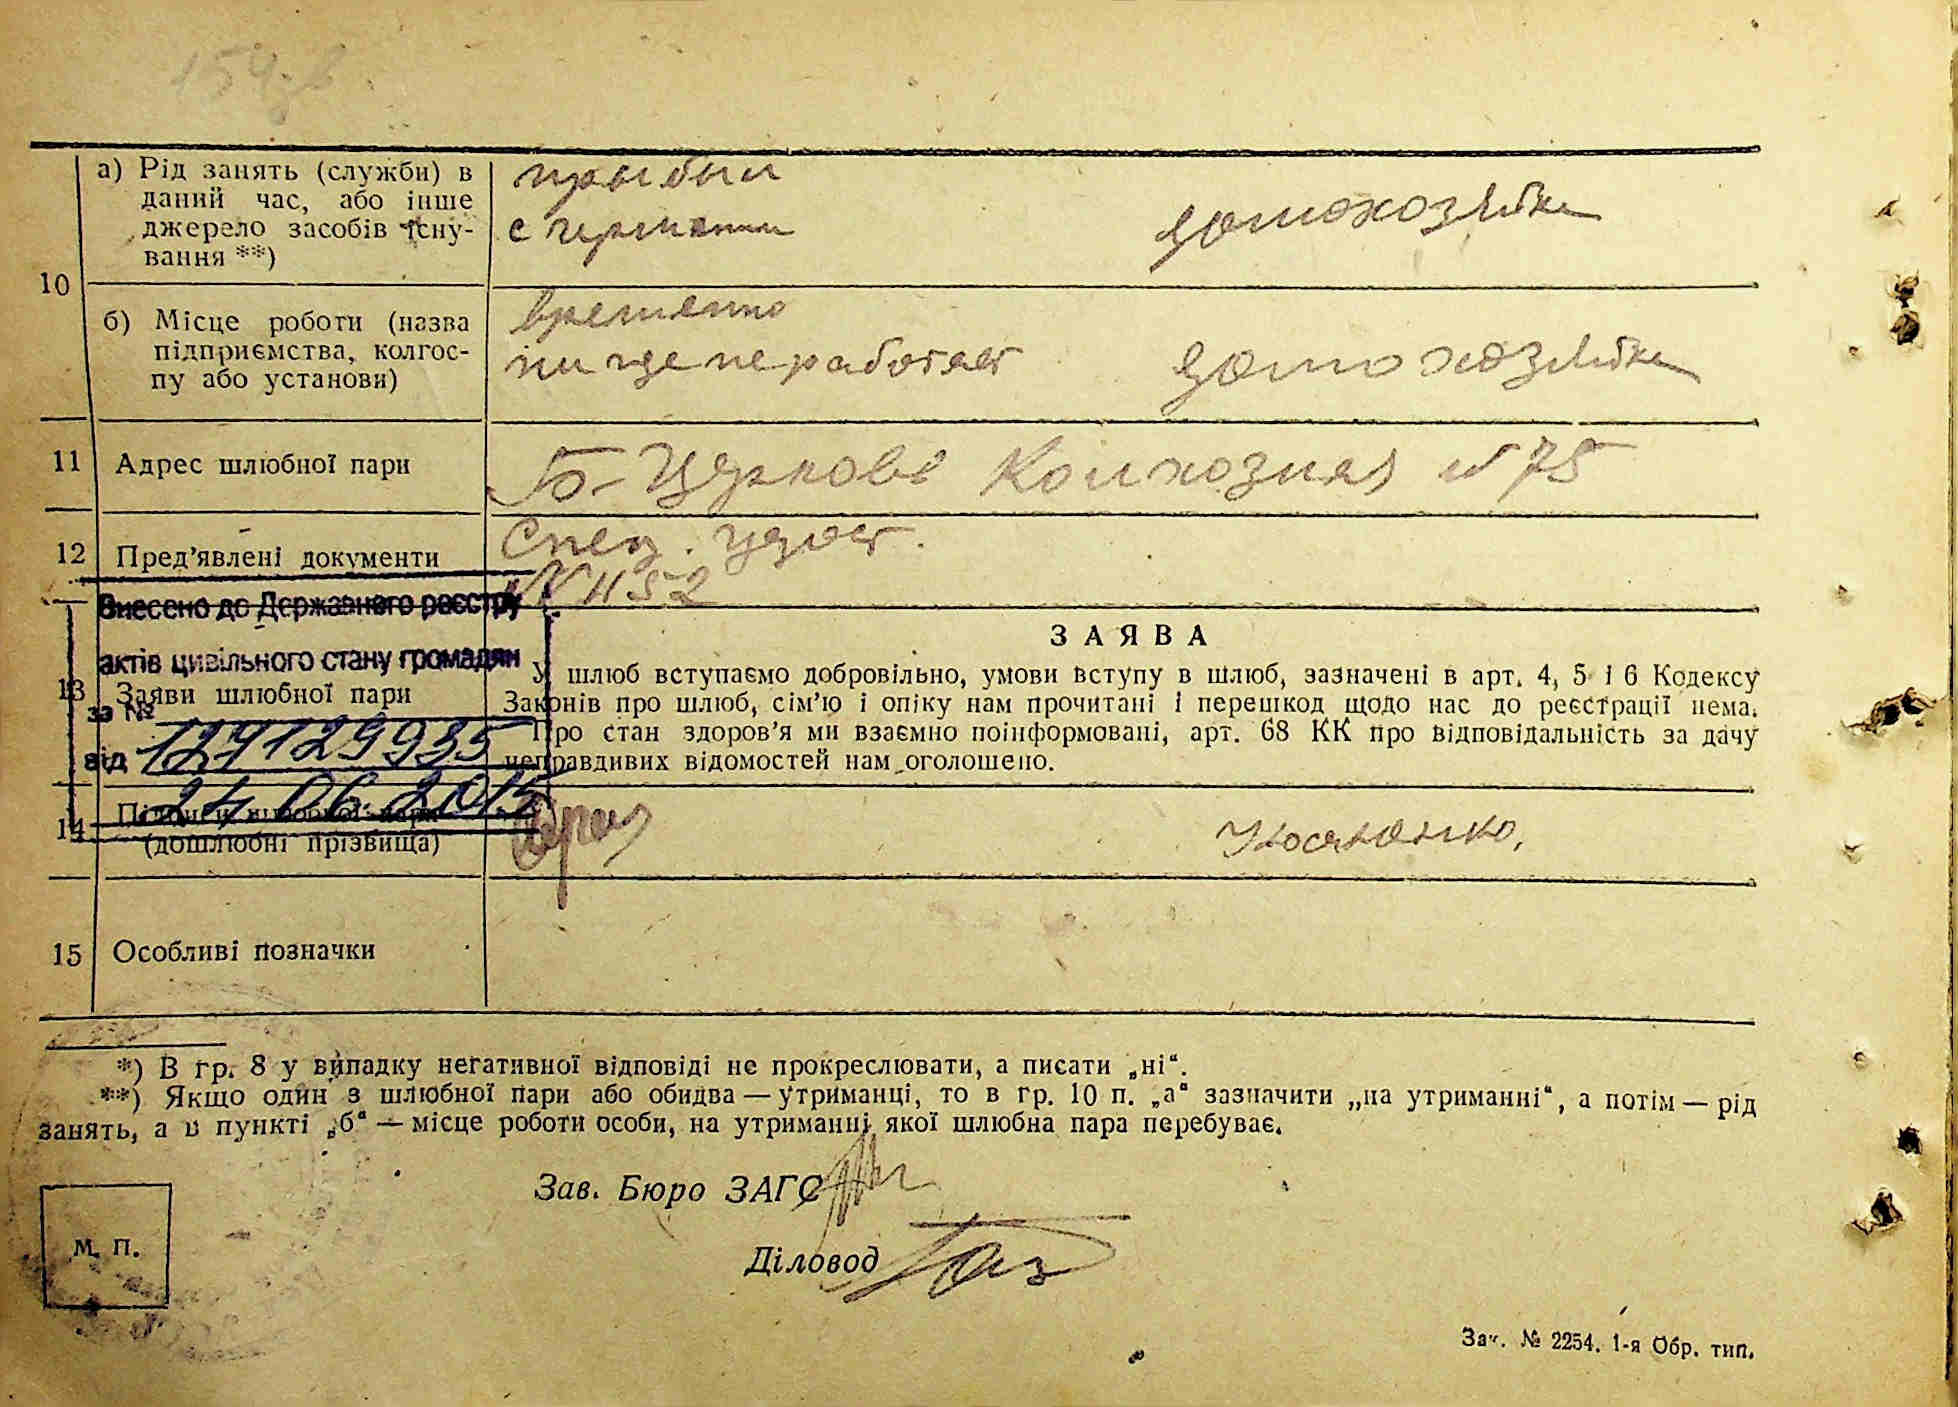 10
а) Рід занять (служби) в
даний час, або інше
джерело засобів існу-
вання **)
прыбыл
с германии
домохозяйка
б) Місце роботи (назва
підприємства, колгос-
пу або установи)
временно
ни где не работает
домохозяйка
11 Адрес шлюбної пари
Б-Церковь Колхозная № 75
12 Пред'явлені документи
Спец. удост.
№ 1152
Внесено до Державного реєстру
актів цивільного стану громадян
за № 127129935
від 24 06. 2015
13 Заяви шлюбної пари
ЗАЯВА
У шлюб вступаємо добровільно, умови вступу в шлюб, зазначені в арт. 4, 5 і 6 Кодексу
Законів про шлюб, сім'ю і опіку нам прочитані і перешкод щодо нас до реєстрації нема.
Про стан здоров'я ми взаємно поінформовані, арт. 68 КК про відповідальність за дачу
неправдивих відомостей нам оголошено.
14 Підписи шлюбної пари
(дошлюбні прізвища)
15 Особливі позначки
*) В гр. 8 у випадку негативної відповіді не прокреслювати, а писати „ні“.
**) Якщо один з шлюбної пари або обидва — утриманці, то в гр. 10 п. „а“ зазначити „на утриманні“, а потім — рід
занять, а в пункті „б“ — місце роботи особи, на утриманні якої шлюбна пара перебуває.
Зав. Бюро ЗАГС
Діловод
М. П.
Зак. № 2254. 1-я Обр. тип.